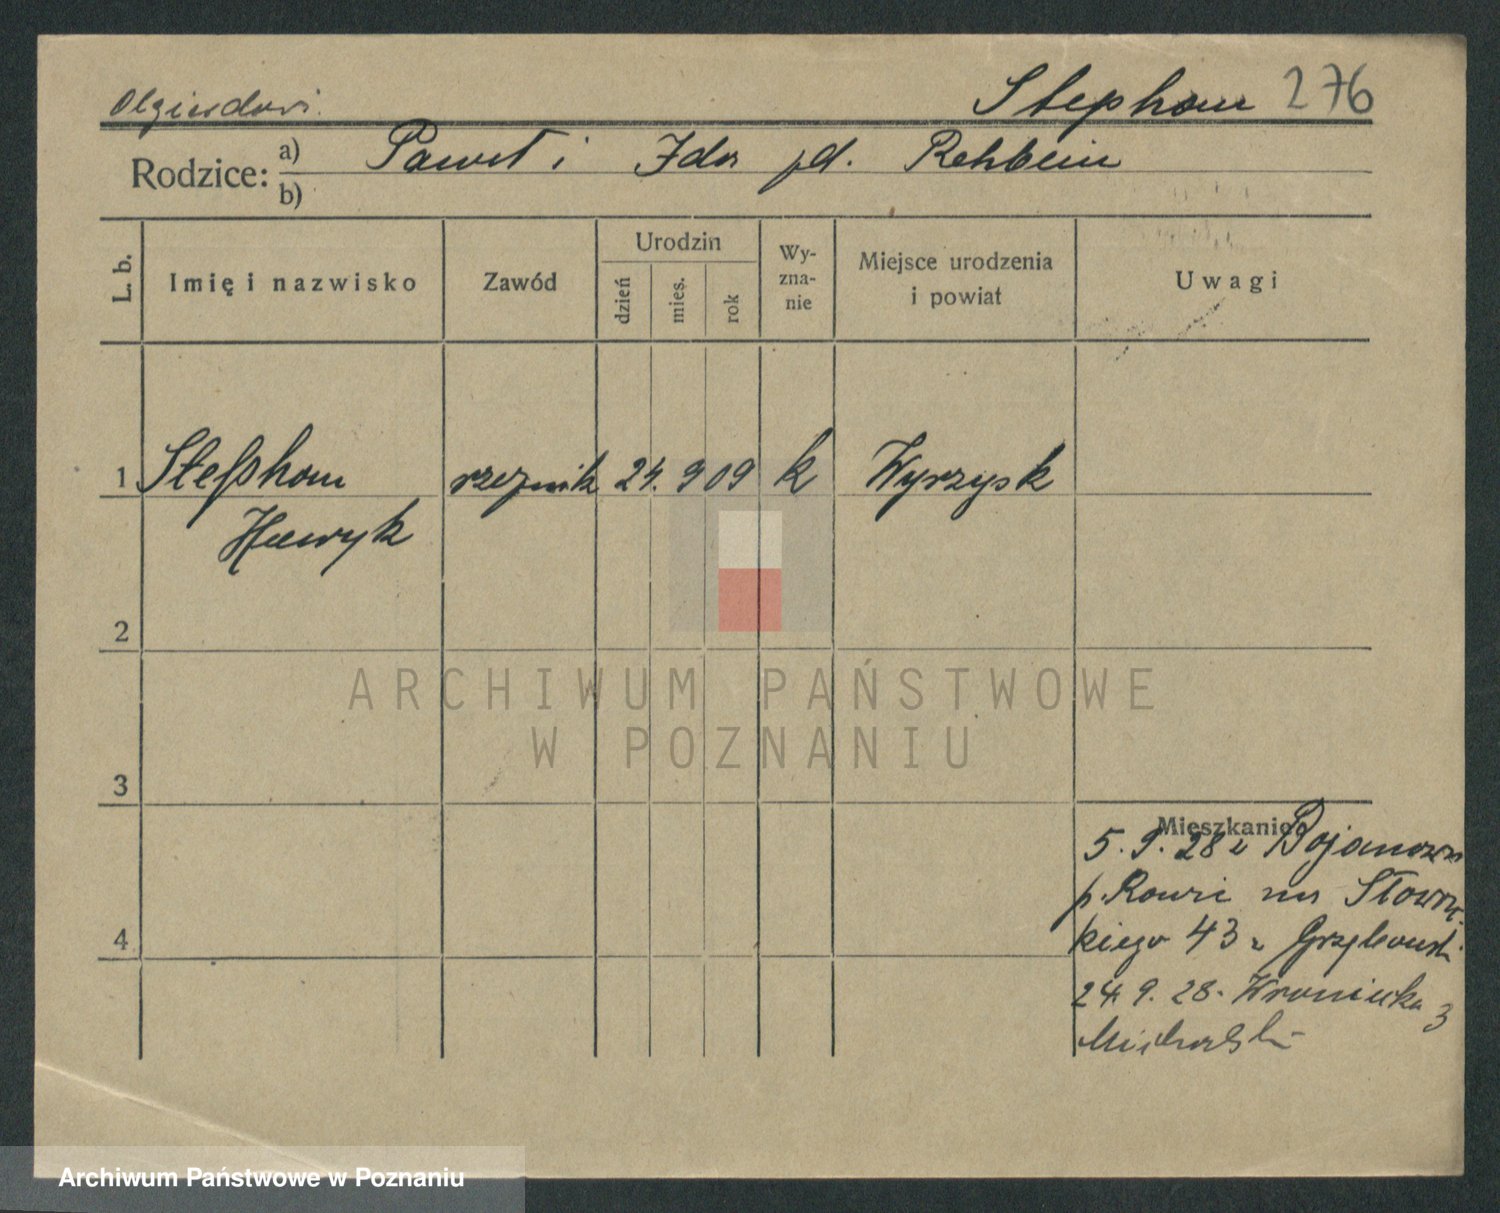 Stephan 276
Rodzice: a) Paweł i Ida pd. Rehbein
b)
L. b. Imię i nazwisko Zawód Urodzin dzień mies. rok Wy-zna-nie Miejsce urodzenia i powiat Uwagi
1 Stephan rzeźnik 24. 9 09 k Wyrzysk
Henryk
2
3
Mieszkanie
5. 9. 28 z Bojanowa
p. Rawicz
kiego 43
4
24. 9. 28. Wroniecka 3
Michalski
ARCHIWUM PAŃSTWOWE
W POZNANIU
Archiwum Państwowe w Poznaniu